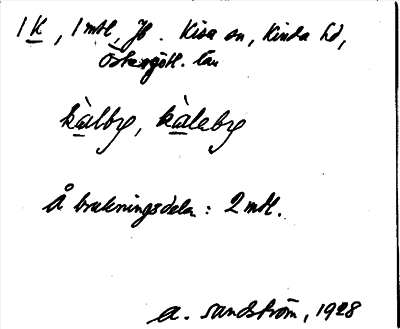 1 K, 1 mtl, Jb. Kisa sn, Kinda hd,
Östergötl. län
kàlby, kàleby
Å brukningsdelar: 2 mtl.
A. Sandström, 1928